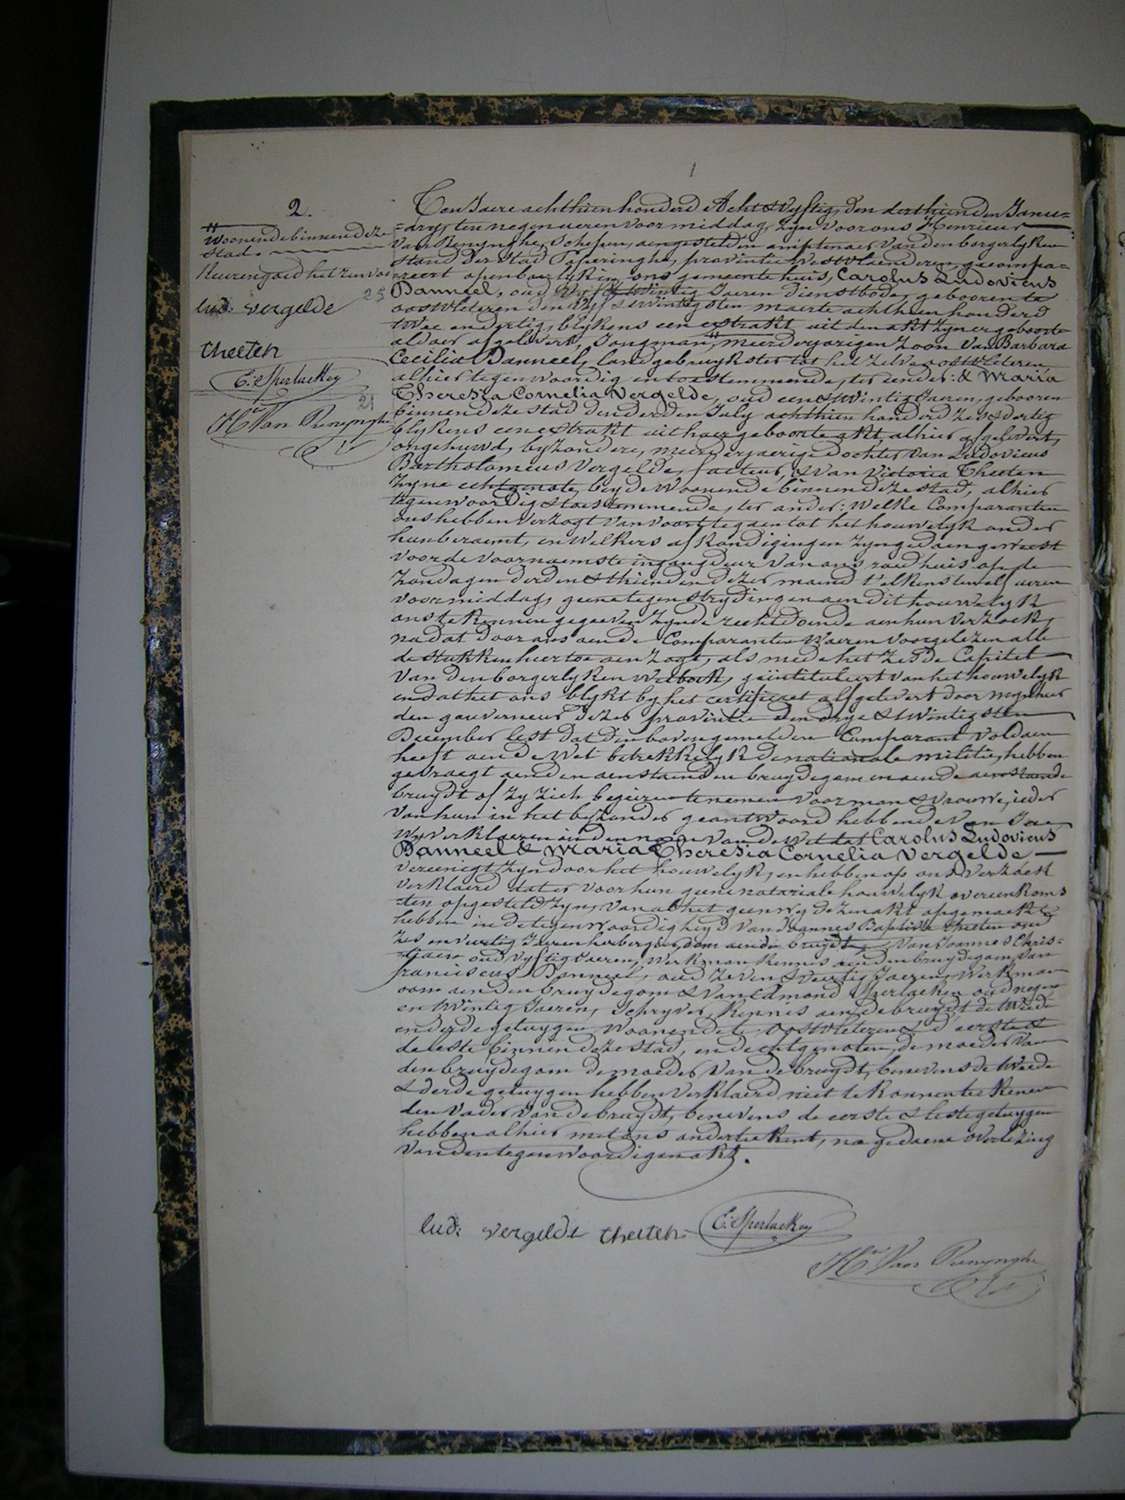 1
2.
Ten Jaere achthien honderd Acht & Vyftig, den derthienden Janu=
=ary, ten negen ueren voormiddag, zyn voor ons Henricus
Van Renynghe, Schepen, aengestelden amptenaer van den borgerlyken
Stand der Stad Poperinghe, provintie Westvlaenderen, gecompa=
reert openbaerlyk in ons gemeentehuis, Carolus Ludovicus
Danneel, oud Vyf & twintig Jaeren, dienstbode, geboren te
oostvleteren den Vyf & twintigsten maerte achthien honderd
twee en dertig, blykens een extrakt uit den akt zyner geboorte
aldaer afgeleverd, Jongman, meerderjarigen Zoon van Barbara
Cecilia Danneel, landgebruykster tot het zelve oostvleteren,
alhier tegenwoordig en toestemmende, ter eender: & Maria
Theresia Cornelia Vergelde, oud een & twintig Jaeren, geboren
binnen deze stad den derden July achthien honderd zes & dertig
blykens een extrakt uit haer geboorte akt, alhier afgelevert,
ongehuwd, byzondere, meerderjaerige dochter van Ludovicus
Bartholomeus Vergelde, facteur, & van Victoria Theeten
zyne echtgenote, beyde woonende binnen deze stad, alhier
tegenwoordig & toestemmende, ter ander: Welke Comparanten
ons hebben verzogt van voort te gaen tot het houwelyk onder
hun beraemt, en welkers afkondigingen zyn gedaen geweest
voor de voornaemste ingangdeur van ons raedhuis op de
Zondagen derden & thienden dezer maend t'elkens ten elf ueren
voormiddag, geene tegenstrydingen aen dit houwelyk
ons te kennen gegeven zynde, recht doende aen hun verzoek,
na dat door ons aen de Comparanten waeren voorgelezen alle
de stukken hiertoe aenzogt, als mede het zesde Capittel
van den borgerlyken Wetboek, geintituleert van het houwelyk
en dat het ons blykt by het certificaet afgelevert door mynheer
den gouverneur dezer provintie den drye & twintigsten
December lest dat den bovengemelden Comparant voldaen
heeft aen de wet betrekkelyk de nationale militie, hebben
gevraegt aen den aenstaenden bruydegom en aen de aenstaende
bruydt of zy zich begeren te nemen voor man & vrouwe, ieder
van hun in het byzonder geantwoord hebbende van Jae,
Wy verklaeren in den naem van de wet dat Carolus Ludovicus
Danneel & Maria Theresia Cornelia Vergelde
vereenigt zyn door het houwelyk, en hebben op ons verzoek
verklaerd dat er voor hun geene notariale houwelyk overeenkoms
ten opgesteld zyn, van al het geen wy dezen akt opgemaekt
hebben in de tegenwoordigheyd van Joannes Baptiste Theeten oud
zes en veertig Jaeren herbergier, oom aen de bruydt, Van Joannes Chris=
oud vyftig Jaeren, Werkman kennis aen den bruydegom, Van
franciscus Danneel, oud zeven & veertig Jaeren, Werkman
oom aen den bruydegom & Van Edmond Sperlaeken oud negen
en twintig Jaeren, Schryver, kennis aen de bruydt de tweede
en derde getuygen woonende te Oostvleteren & d'eerste &
de leste binnen deze stad, en de echtgenoten, de moeder van
den bruydegom de moeder van de bruydt, benevens de tweede
& derde getuygen hebben verklaerd niet te konnen teekenen
den vader van de bruydt, benevens de eerste & leste getuygen
hebben alhier met ons onderteekent, na gedaene voorlezing
van den tegenwoordigen akt.
lud: vergelde theeten E: Sperlaeken
Hri Van Renynghe
Woonende binnen deze
Stad
Keuren goed het renvoi
lud: vergelde
theeten
E: Sperlaeken
Hri Van Renynghe
25
21